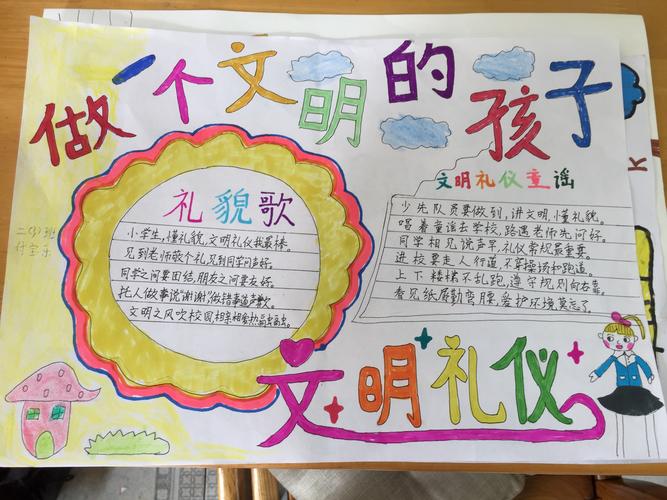 做一个文明的孩子
二(3)班
付宝乐
礼貌歌
小学生,懂礼貌,文明礼仪我最棒。
见到老师敬个礼,见到同学问声好。
同学之间要团结,朋友之间要友好。
托人做事说"谢谢",做错事道声歉。
文明之风吹校园,相亲相爱热
文明礼仪童谣
少先队员要做到,讲文明,懂礼貌。
唱着童谣去学校,路遇老师先问好。
同学相见说声早,礼仪常规最重要。
进校要走人行道,不穿操场和跑道。
上下楼梯不乱跑,遵守规则向右靠。
看见纸屑勤弯腰,爱护环境莫忘了。
文明礼仪